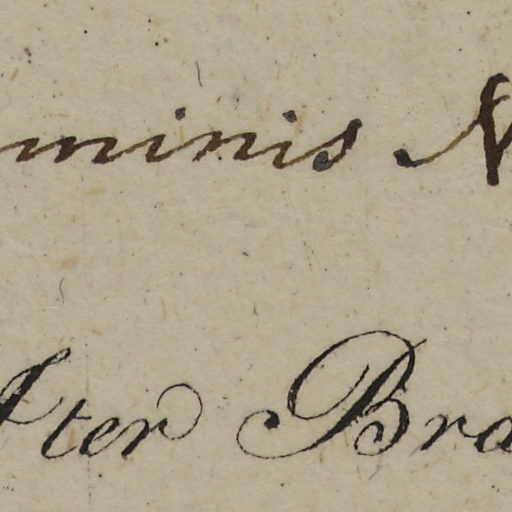 minis N
ter Bra